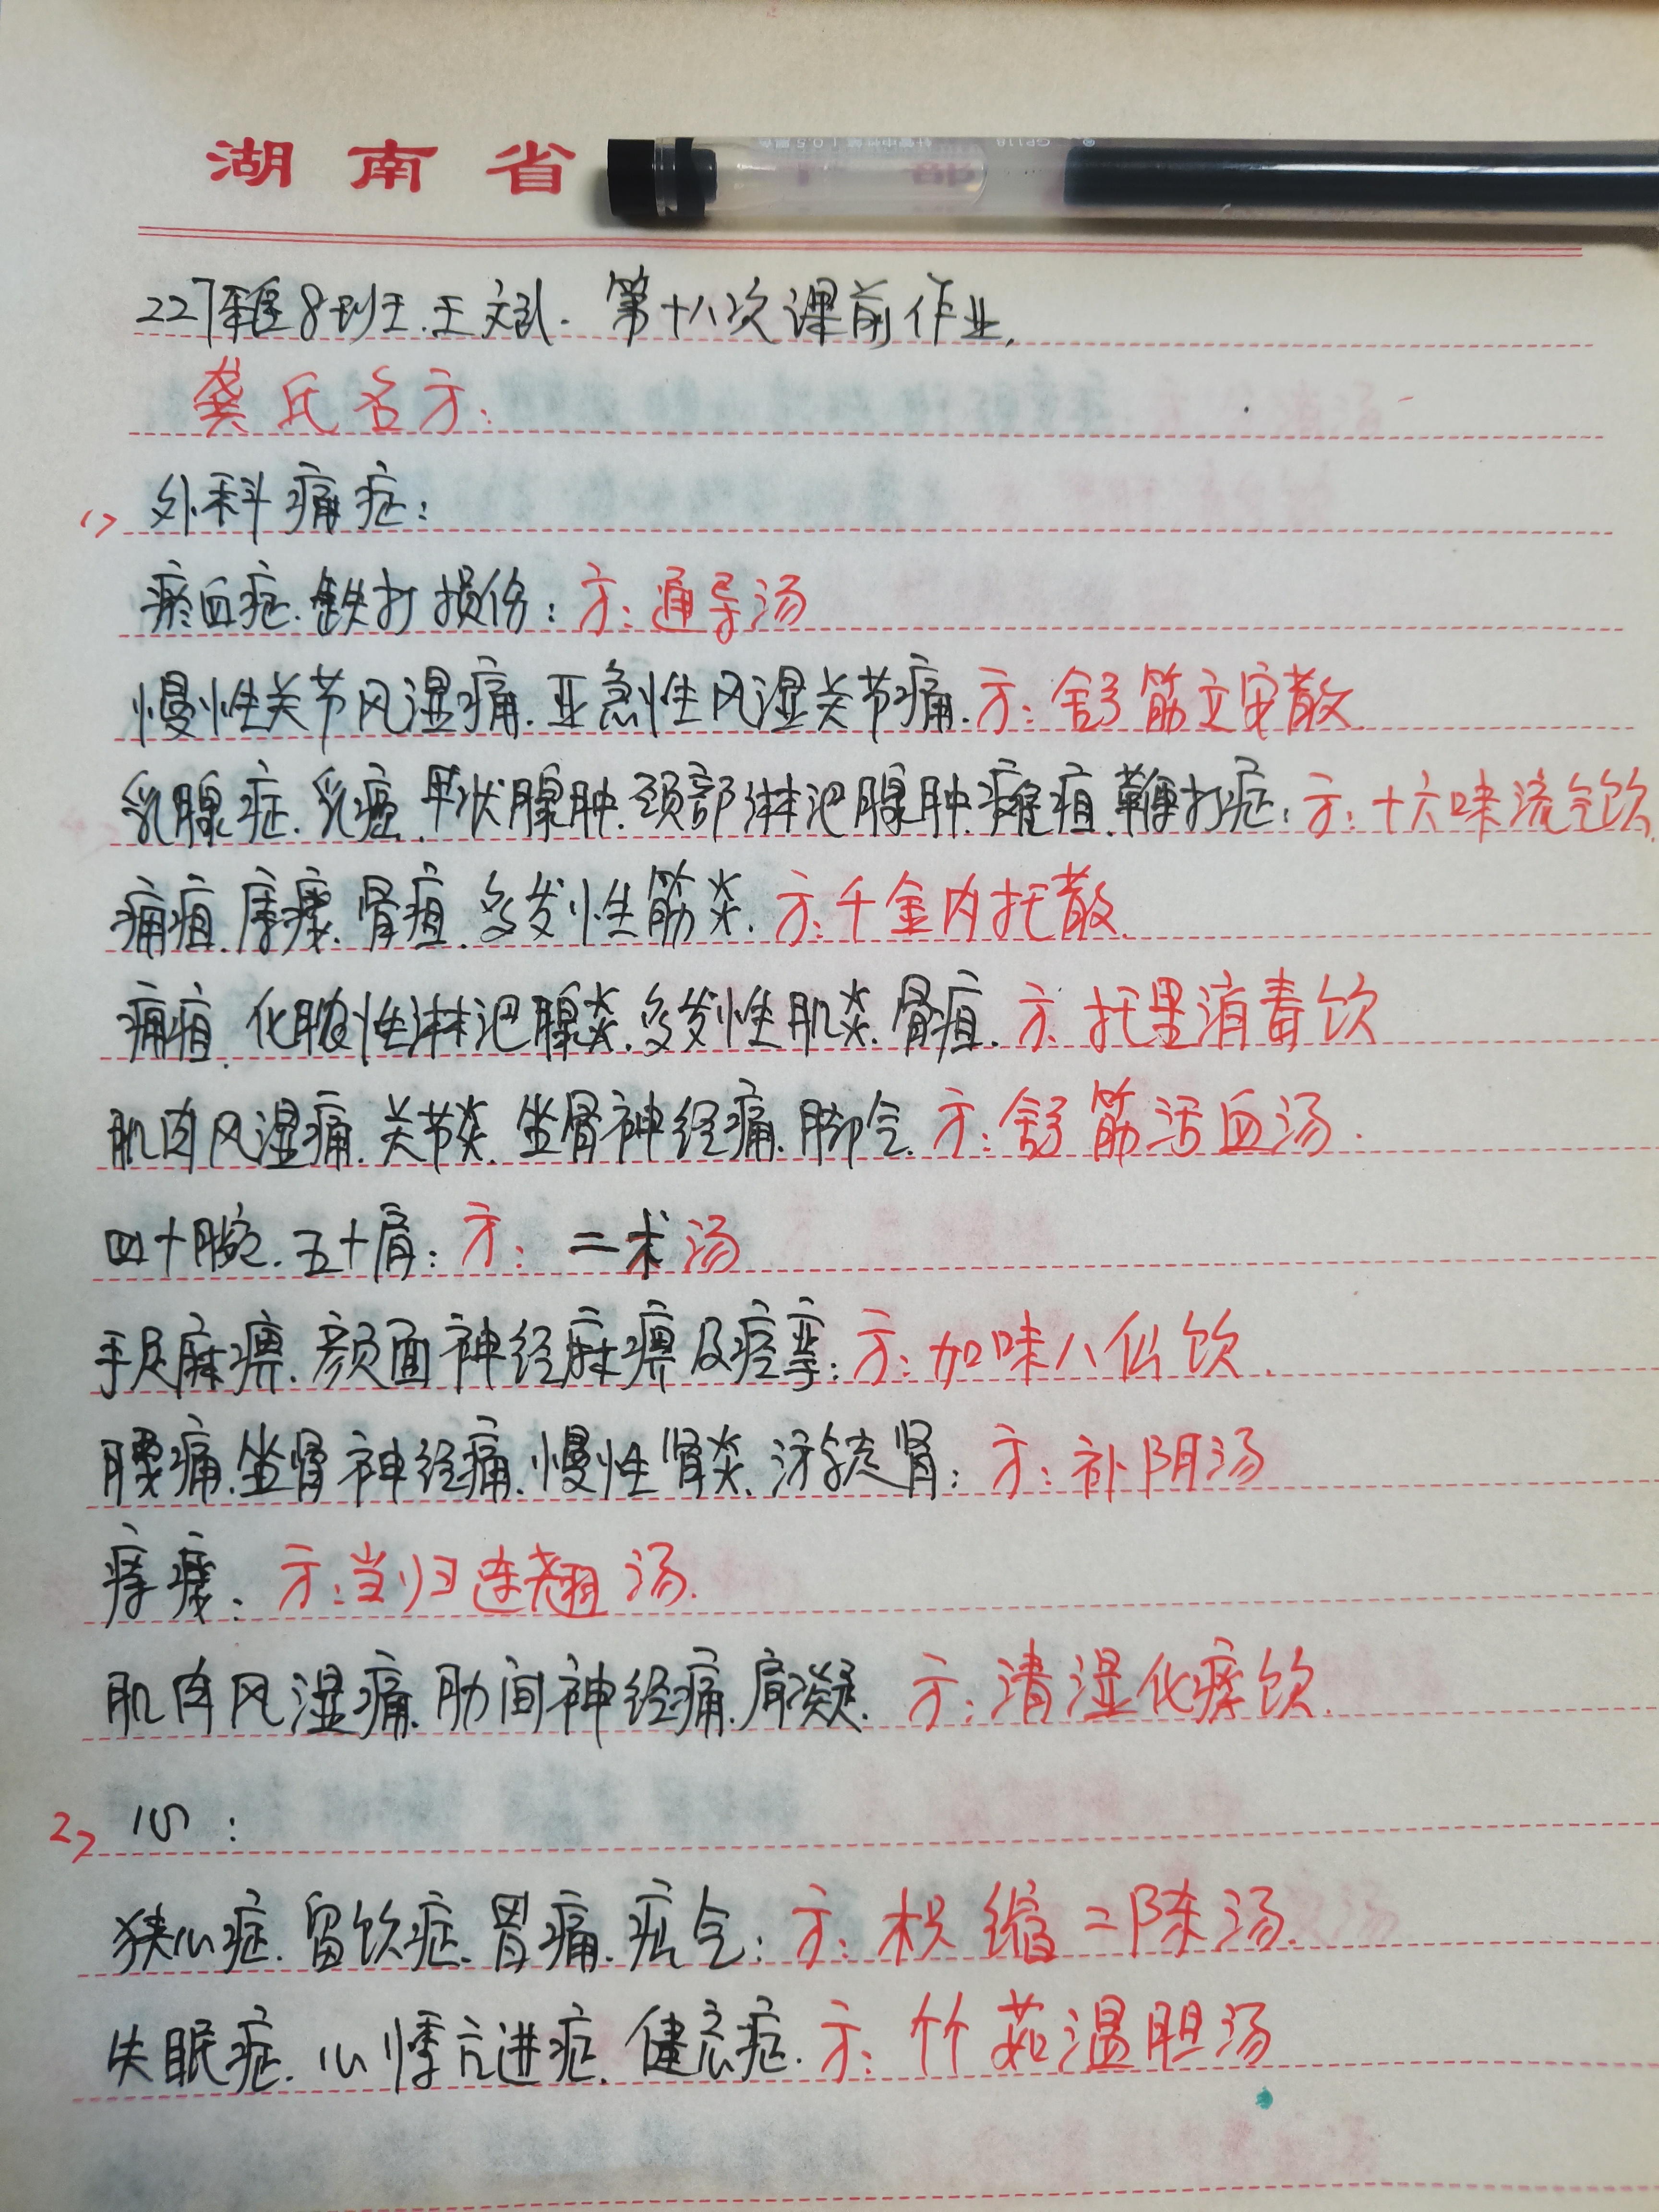 湖南省
227程8班王.王文彬.第十八次课前作业.
龚氏名方:
1> 外科痛症:
瘀血症.铁打损伤:方:通导汤
慢性关节风湿痛.亚急性风湿关节痛.方:舒筋立安散.
乳腺症.乳癌.甲状腺肿.颈部淋巴腺肿.瘫疽.鞭打症:方:十六味流气饮.
痈疽.瘰疬.骨疽.多发性筋炎.方:千金内托散.
痈疽.化脓性淋巴腺炎.多发性肌炎.骨疽.方:托里消毒饮
肌肉风湿痛.关节炎.坐骨神经痛.脚气.方:舒筋活血汤.
四十腕.五十肩:方:二术汤
手足麻痹.颜面神经麻痹及痉挛:方:加味八仙饮.
腰痛.坐骨神经痛.慢性肾炎.游走肾:方:补阴汤
方:当归连翘汤.
肌肉风湿痛.肋间神经痛.肩凝.方:清湿化痰饮.
2> 心:
狭心症.留饮症.胃痛.疝气:方:枳缩二陈汤.
失眠症.心悸亢进症.健忘症.方:竹茹温胆汤